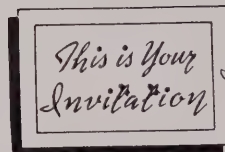 This is Your
Invitation